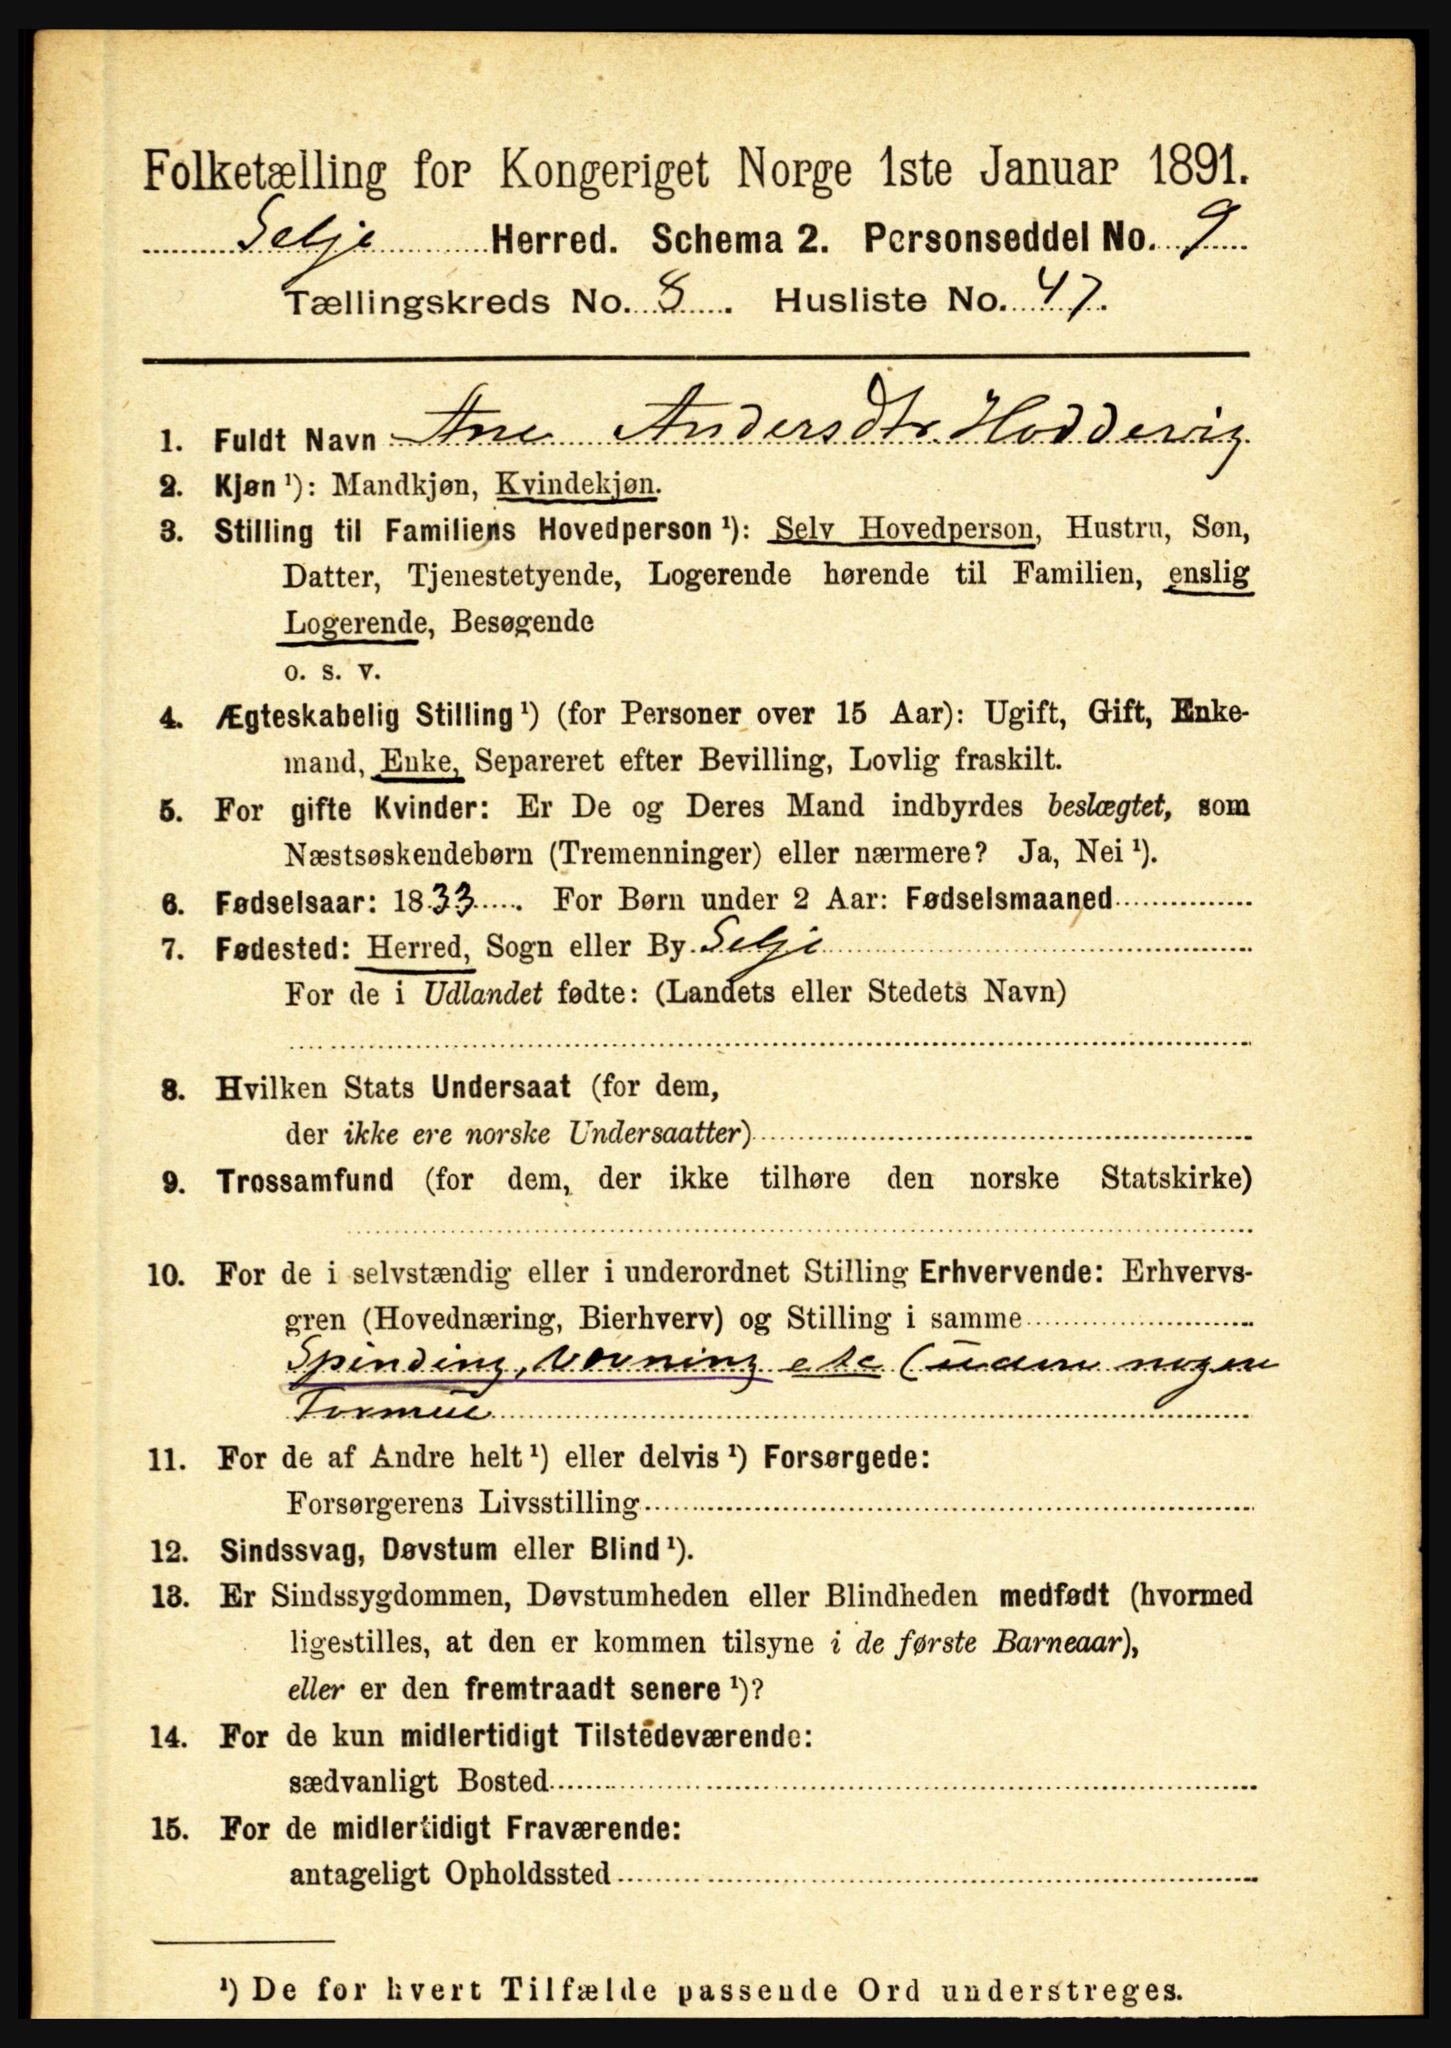 Folketælling for Kongeriget Norge 1ste Januar 1891.
Selje Herred. Schema 2. Personseddel No. 9
Tællingskreds No. 8. Husliste No. 47.
1. Fuldt Navn Ane Andersdtr. Hoddevig
2. Kjøn ¹): Mandkjøn, Kvindekjøn.
3. Stilling til Familiens Hovedperson ¹): Selv Hovedperson, Hustru, Søn,
Datter, Tjenestetyende, Logerende hørende til Familien, enslig
Logerende, Besøgende
o. s. v.
4. Ægteskabelig Stilling ¹) (for Personer over 15 Aar): Ugift, Gift, Enke-
mand, Enke, Separeret efter Bevilling, Lovlig fraskilt.
5. For gifte Kvinder: Er De og Deres Mand indbyrdes beslægtet, som
Næstsøskendebørn (Tremenninger) eller nærmere? Ja, Nei ¹).
6. Fødselsaar: 1833. For Børn under 2 Aar: Fødselsmaaned
7. Fødested: Herred, Sogn eller By Selje
For de i Udlandet fødte: (Landets eller Stedets Navn)
8. Hvilken Stats Undersaat (for dem,
der ikke ere norske Undersaatter)
9. Trossamfund (for dem, der ikke tilhøre den norske Statskirke)
10. For de i selvstændig eller i underordnet Stilling Erhvervende: Erhvervs-
gren (Hovednæring, Bierhverv) og Stilling i samme
Spinding, Vævning etc (uden nogen
Formue
11. For de af Andre helt ¹) eller delvis ¹) Forsørgede:
Forsørgerens Livsstilling
12. Sindssvag, Døvstum eller Blind ¹).
13. Er Sindssygdommen, Døvstumheden eller Blindheden medfødt (hvormed
ligestilles, at den er kommen tilsyne i de første Barneaar),
eller er den fremtraadt senere ¹)?
14. For de kun midlertidigt Tilstedeværende:
sædvanligt Bosted
15. For de midlertidigt Fraværende:
antageligt Opholdssted
¹) De for hvert Tilfælde passende Ord understreges.